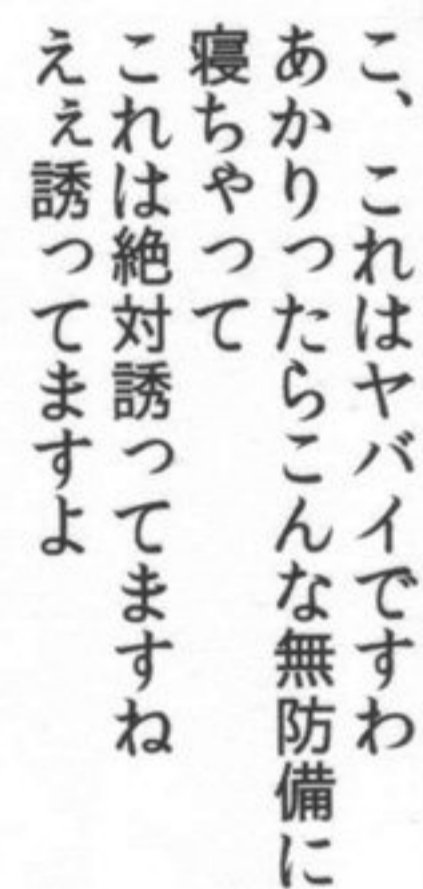 こ、これはヤバイですわ
あかりったらこんな無防備に
寝ちゃって
これは絶対誘ってますね
えぇ誘ってますよ